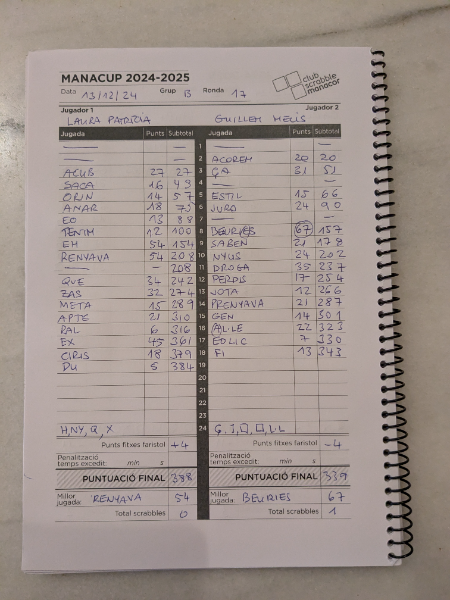 MANACUP 2024-2025
club scrabble manacor
Data 13/12/24 Grup B Ronda 17
Jugador 1 Jugador 2
LAURA PATRICIA GUILLEM MELIS
Jugada Punts Subtotal Jugada Punts Subtotal
— — 1 — —
— — 2 ACOREM 20 20
ACUB 27 27 3 ÇA 31 51
SACA 16 43 4 — —
ORIN 14 57 5 ESTIL 15 66
AMAR 18 75 6 JURO 24 90
EO 13 88 7 — —
TENIM 12 100 8 BEURIES 67 157
EM 54 154 9 SABEN 21 178
RENYAVA 54 208 10 NYUS 24 202
— 208 11 DROGA 35 237
QUE 34 242 12 PERDIS 17 254
BAS 32 274 13 JOTA 12 266
META 15 289 14 PRENYAVA 21 287
APTE 21 310 15 GEN 14 301
PAL 6 316 16 AL·LE 22 323
EX 45 361 17 EOLIC 7 330
CIRIS 18 379 18 FI 13 343
DU 5 384 19
20
21
22
23
H,NY,Q,X 24 Ç,J,□,□,L·L
Punts fitxes faristol +4 Punts fitxes faristol -4
Penalització temps excedit: min s Penalització temps excedit: min s
PUNTUACIÓ FINAL 388 PUNTUACIÓ FINAL 339
Millor jugada: RENYAVA 54 Millor jugada: BEURIES 67
Total scrabbles 0 Total scrabbles 1